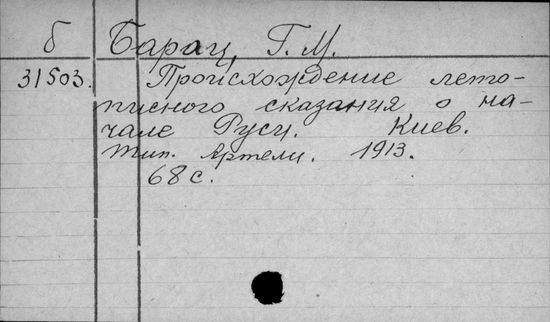 б Барац, Г. М.
31503. Происхождение лето-
писного сказания о на-
чале Руси. Киев.
тип. Артели. 1913.
68 с.